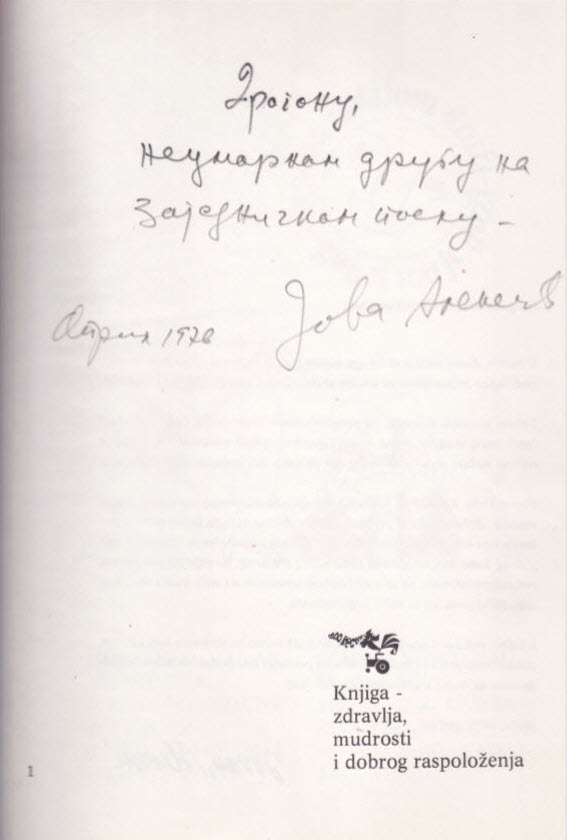 Драгану,
неуморном другу на
заједничком послу –
Јова
Април
Knjiga -
zdravlja,
mudrosti
i dobrog raspoloženja
1